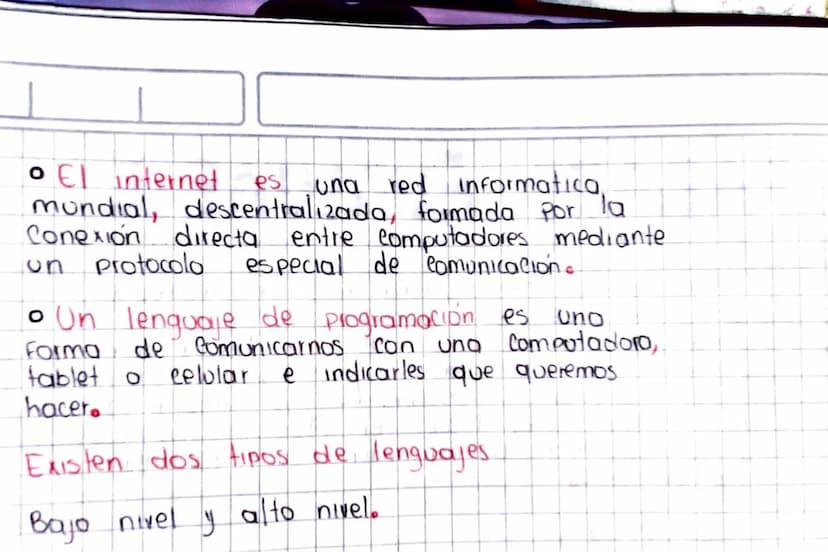 o El internet es una red informatica,
mundial, descentralizada, formada por la
conexión directa entre computadores mediante
un protocolo especial de comunicación.
o Un lenguaje de programación es una
forma de comunicarnos con una computadora,
tablet o celular e indicarles que queremos
hacer.
Existen dos tipos de lenguajes
Bajo nivel y alto nivel.